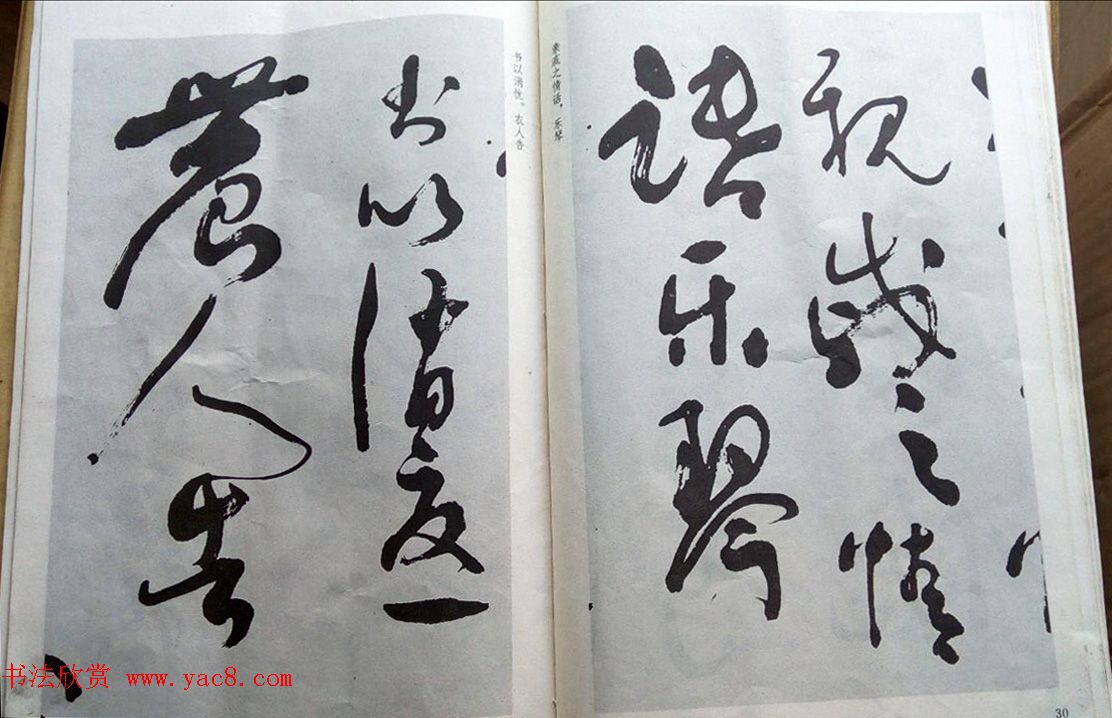 親戚之情
話樂琴
亲戚之情话，乐琴
书以消忧。农人告
書以消憂
農人告
30
书法欣赏 www.yac8.com